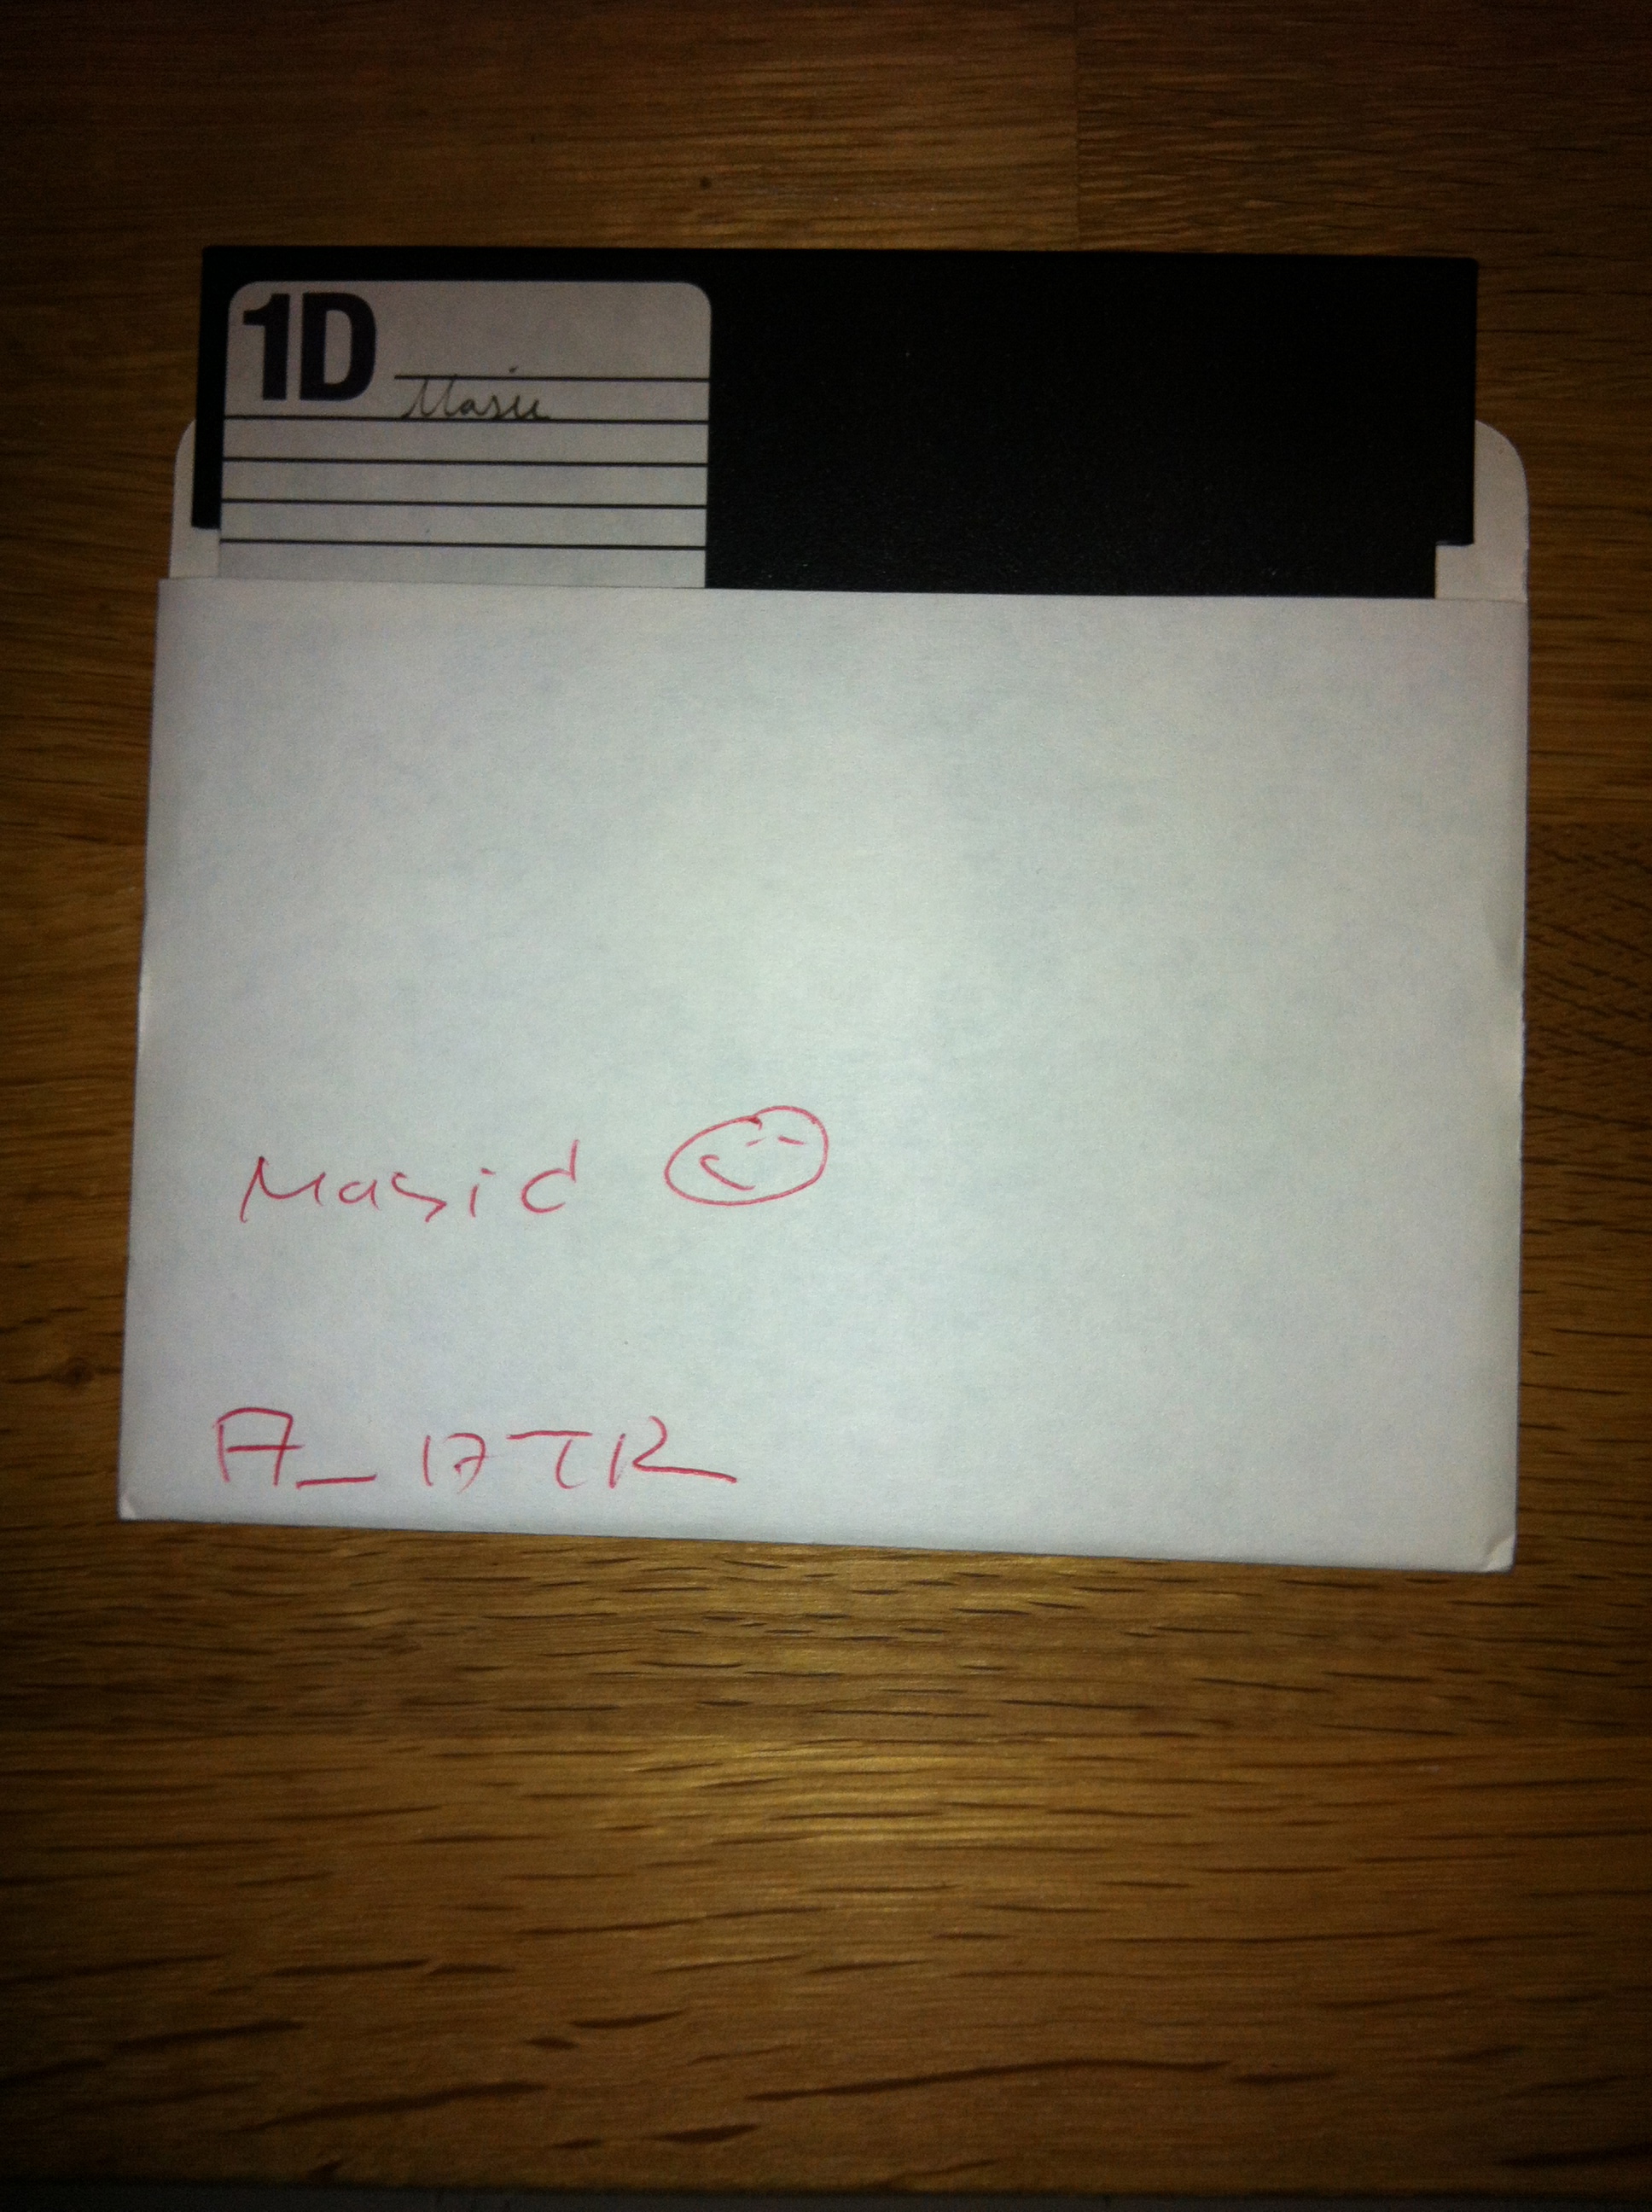 1D
Masic
Masic
A_17TR